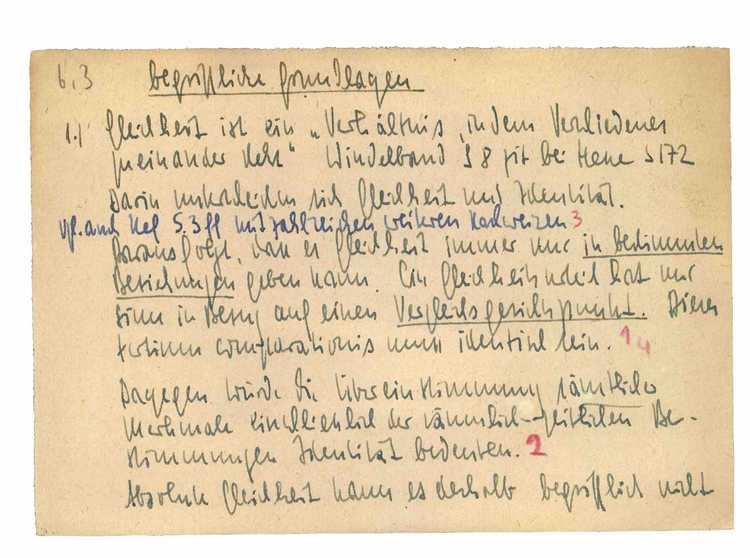 6.3 begriffliche Grundlagen
1.) Gleichheit ist ein „Verhältnis, in dem Verschiedenes
zueinander steht" Windelband S 8 zit bei Hesse S 172
Darin unterscheiden sich Gleichheit und Identität.
vgl. auch Nef S. 3 ff mit zahlreichen weiteren Nachweisen 3
Daraus folgt, dass es Gleichheit immer nur in bestimmten
Beziehungen geben kann. Ein Gleichheitsurteil hat nur
Sinn in Bezug auf einen Vergleichsgesichtspunkt. Dieses
tertium comparationis muss identisch sein. 1 4
Dagegen würde die Übereinstimmung sämtlicher
Merkmale einschliesslich der räumlich-zeitlichen Be-
stimmungen Identität bedeuten. 2
Absolute Gleichheit kann es deshalb begrifflich nicht